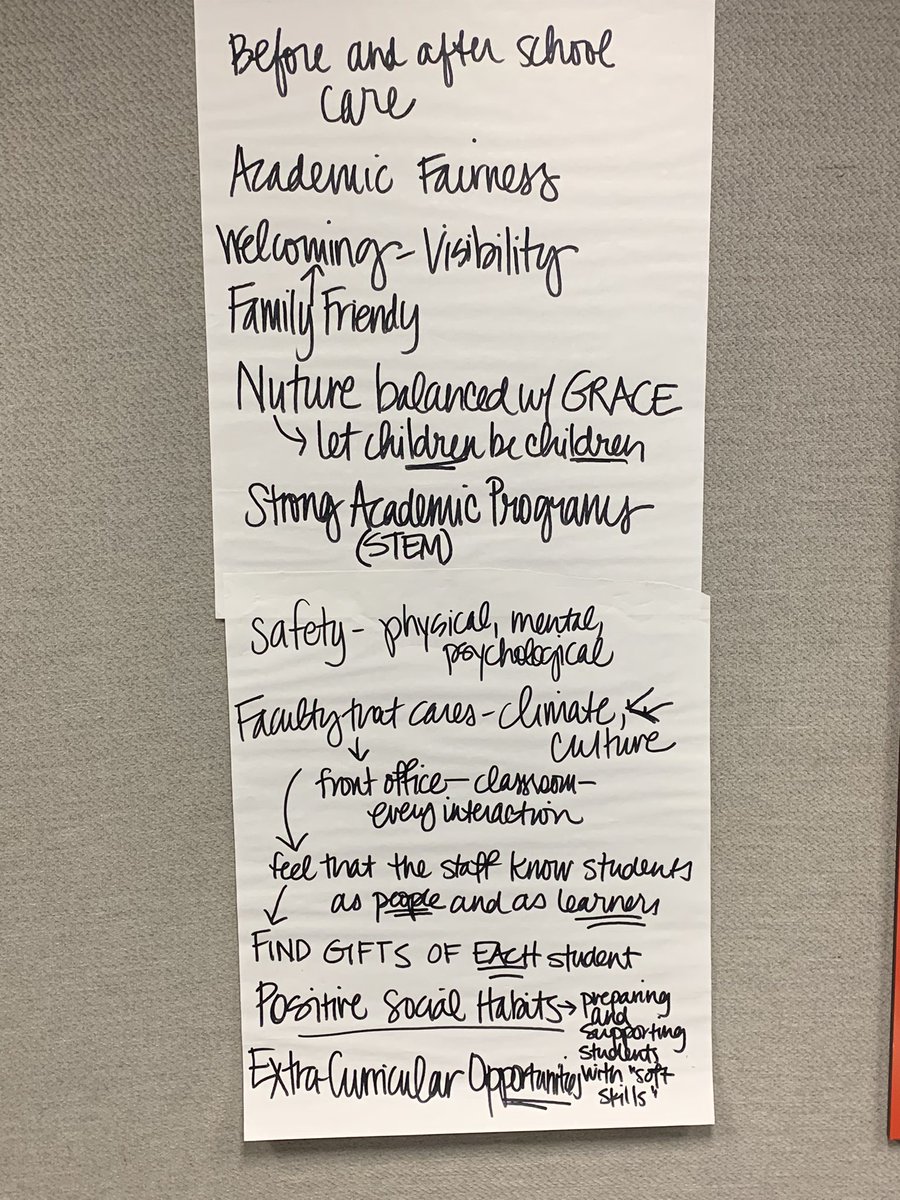 Before and after school
care
Academic Fairness
Welcoming - Visibility
↑
Family Friendy
Nuture balanced w/ GRACE
→ let children be children
Strong Academic Programs
(STEM)
Safety - physical, mental,
psychological
Faculty that cares - climate, ←
culture
↓
front office - classroom -
every interaction
feel that the staff know students
as people and as learners
FIND GIFTS OF EACH student
Positive Social Habits → preparing
and
supporting
students
with "soft
skills"
Extra-Curricular Opportunities